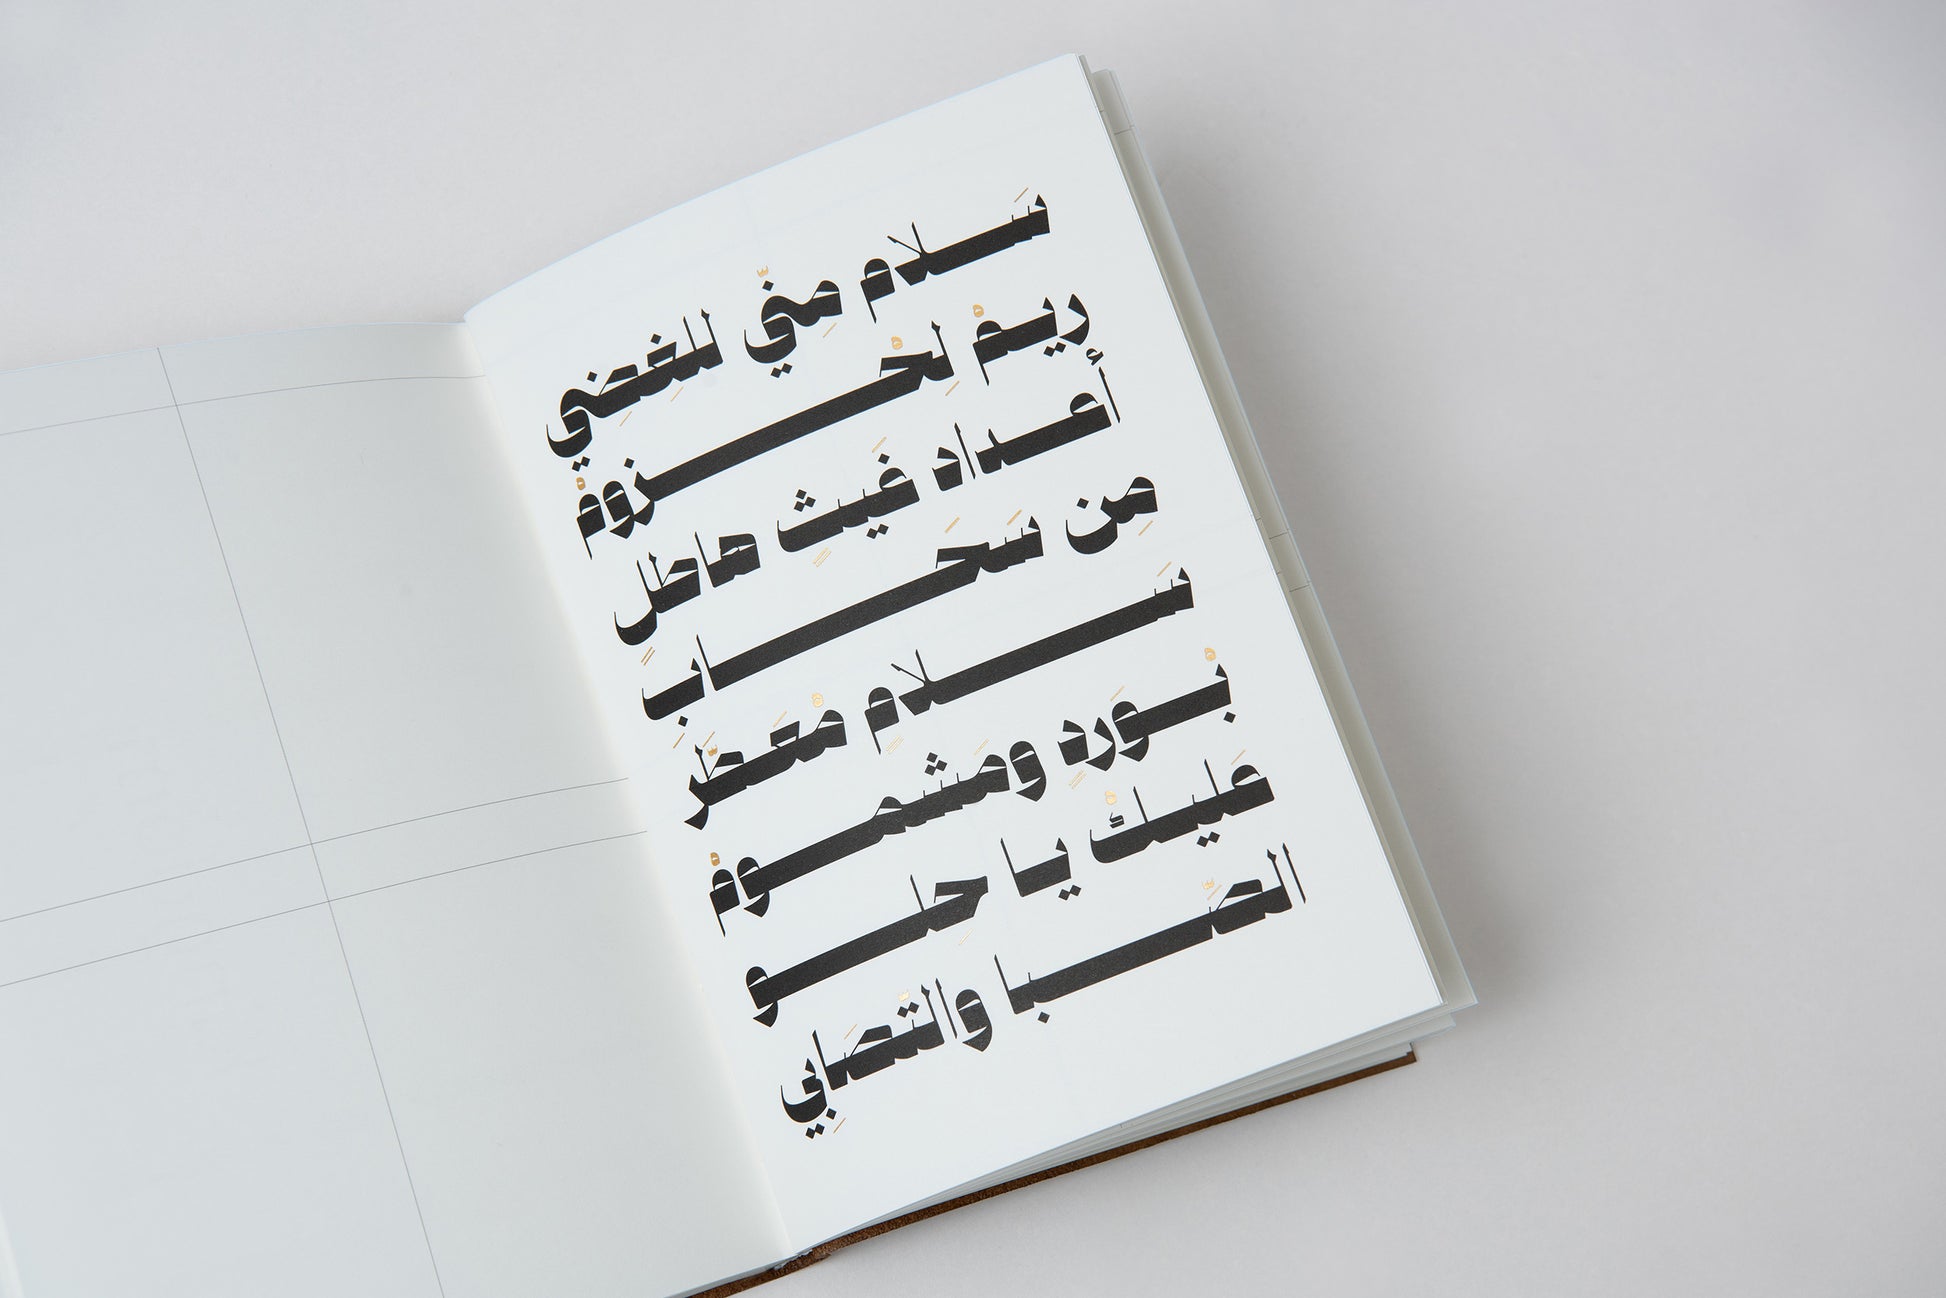 سَلام مِنّي للغِضِي
ريمْ لِحْزومْ
أعداد غَيثٍ هاطلٍ
مِن سَحَابِ
سَلامٍ مُعَطَّرِ
بْوَردٍ ومَشمومْ
عَليكْ يا حِلو
الصّبا والتّصَابِي